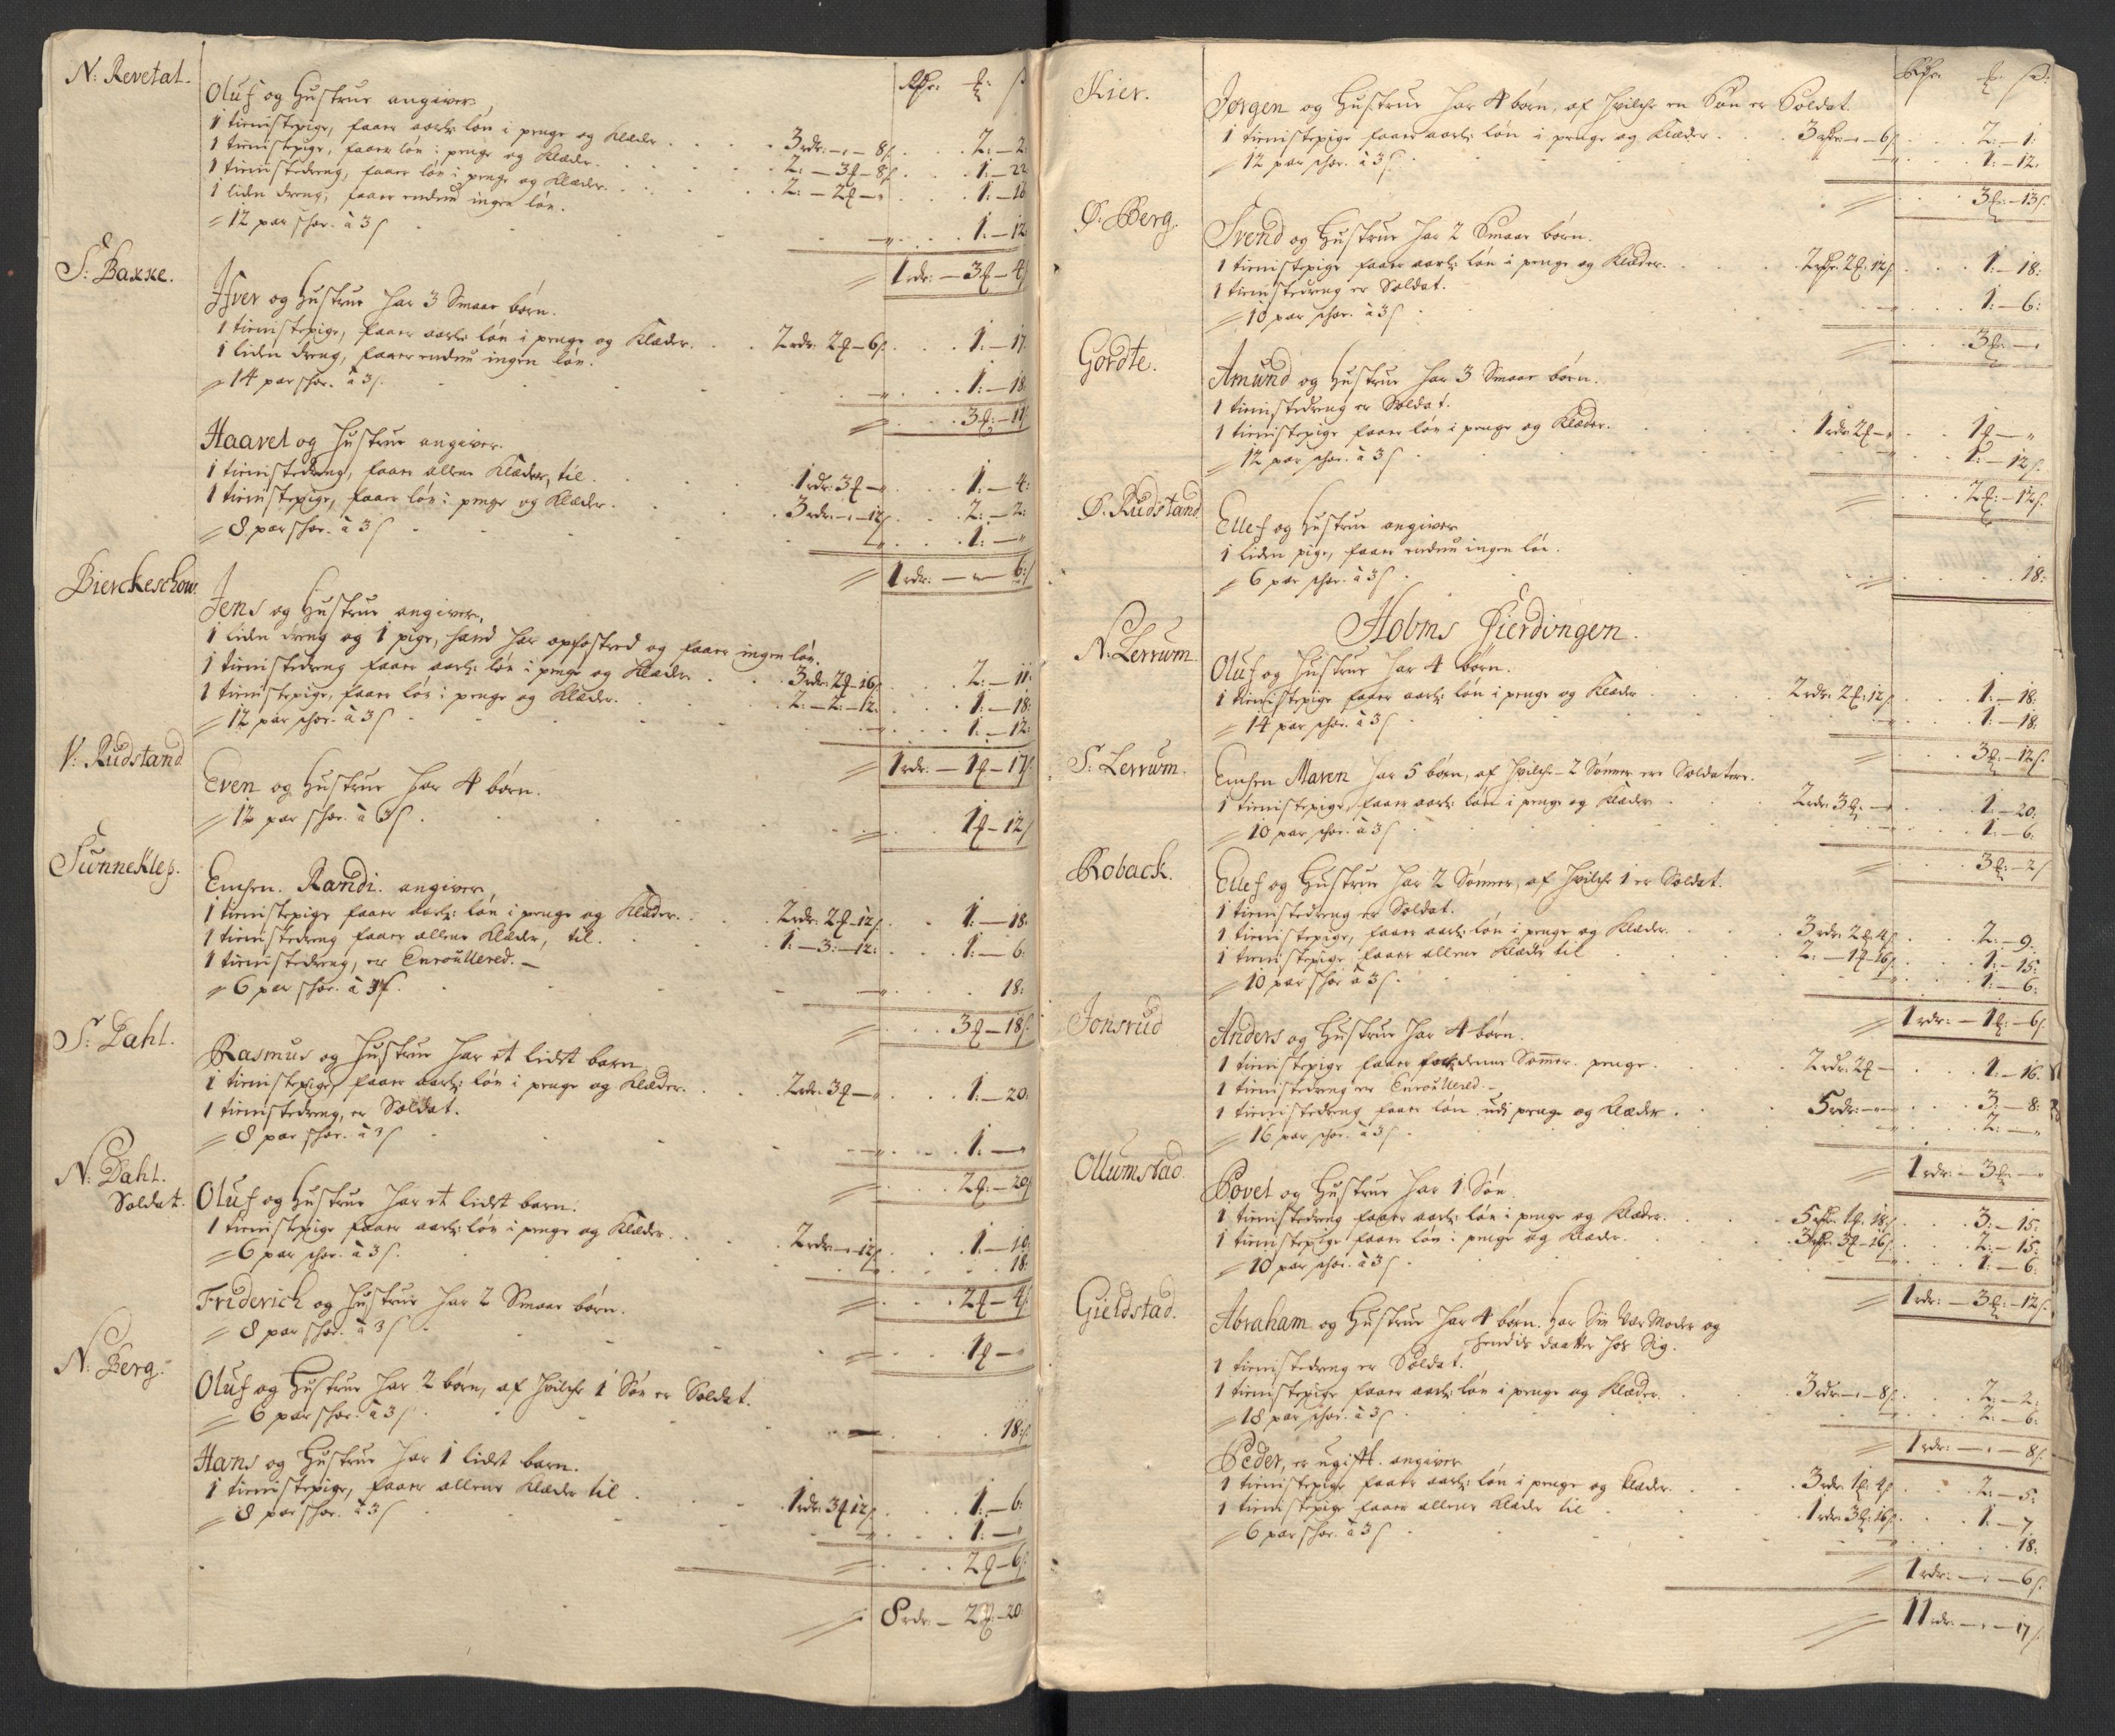 Rdr: ₰: ß
N: Revetal. Oluf og Hustrue angiver,
1 tienistepige, faaer aarl: løn i penge og Klæder . . . 3 rdr: — „ — 8 ß . . . 2: — 2:
1 tienistepige, faaer løn i penge og Klæder. . . . 2: — 3 ₰ — 8 ß . . . 1: — 22
1 tienistedreng, faaer løn i penge og Klæder. . . . 2: — 2 ₰ — „ . . . 1: — 16
1 liden dreng, faaer endnu ingen løn.
12 par schoe. à 3 ß . . . — „ . . . 1: — 12
1 rdr: — 3 ₰ — 4 ß
S: Bakke. Ifver og Hustrue har 3 Smaae børn.
1 tienistepige, faaer aarl: løn i penge og Klæder. . . 2 rdr: 2 ₰ — 6 ß . . . 1: — 17.
1 liden dreng, faaer endnu ingen løn.
14 par schoe. à 3 ß. . . . — „ . . . 1: — 18.
3 ₰: — 11
Haavel og Hustrue angiver.
1 tienistedreng, faaer allene Klæder, til . . . 1 rdr: 3 ₰ — „ . . . 1: — 4:
1 tienistepige, faaer løn i penge og Klæder. . . . 3 rdr: — „ — 12 ß . . . 2: — 2:
8 par schoe. à 3 ß . . . — „ . . . 1: — „
1 rdr: — „ — 6: ß
Bierckeschow Jens og Hustrue angiver,
1 liden dreng og 1 pige, hand har opfostred og faaer ingen løn.
1 tienistedreng faaer aarl: løn i penge og Klæder . . . 3 rdr: 2 ₰ — 16 ß . . . 2: — 11:
1 tienistepige, faaer løn i penge og Klæder. . . . 2: — 2: — 12: . . . 1: — 18:
12 par schoe. à 3 ß . . . — „ . . . 1: — 12:
1 rdr: — 1 ₰ — 17 ß
V: Rudstand Even og Hustrue har 4 børn.
12 par schoe. à 3 ß . . . 1 ₰ — 12 ß
Sunneklef. Enchen. Randi. angiver,
1 tienistepige faaer aarl: løn i penge og Klæder. . . . 2 rdr: 2 ₰ — 12 ß . . 1: — 18:
1 tienistedreng faaer allene Klæder, til. . . . 1: — 3: — 12: . . . 1: — 6:
1 tienistedreng, er Enroulered. —
6 par schoe. à 3 ß. . . . — „ . . . 18:
3 ₰ — 18 ß
S: Dahl. Rasmus og Hustrue har et lidet barn
1 tienistepige, faaer aarl: løn i penge og Klæder. . . . 2 rdr: 3 ₰ — „ . . . 1: — 20:
1 tienistedreng, er Soldat.
8 par schoe. à 3 ß . . . — „ . . . 1: — „
2 ₰: — 20 ß
N: Dahl. Soldat. Oluf og Hustrue har et lidet barn.
1 tienistepige faaer aarl: løn i penge og Klæder. . . . 2 rdr: — „ — 12 ß . . . 1: — 10:
6 par schoe. à 3 ß. . . . 18:
2 ₰ — 4 ß
Friderich og Hustrue har 2 Smaae børn.
8 par schoe. à 3 ß . . . 1 ₰ — „
N: Berg: Oluf og Hustrue har 2 børn, af hvilche 1 Søn er Soldat.
6 par schoe. à 3 ß . . . 18: ß
Hans og Hustrue har 1 lidet barn.
1 tienistepige, faaer allene Klæder til . . . 1 rdr: 3 ₰ 12 ß . . . 1: — 6:
8 par schoe. à 3 ß . . . — „ . . . 1: — „
2 ₰ — 6 ß
8 rdr: — 2 ₰: — 20:
Rdr: ₰: ß:
Kier. Jørgen og Hustrue har 4 børn, af hvilche en Søn er Soldat
1 tienistepige faaer aarl: løn i penge og Klæder . . . 3 rdr: — „ — 6 ß . . . 2: — 1:
12 par schoe. à 3 ß. . . . — „ . . . 1: — 12.
3 ₰: — 13 ß.
Ø: Berg. Svend og Hustrue har 2 Smaae børn.
1 tienistepige faaer aarl: løn i penge og Klæder. . . . 2 rdr: 2 ₰: 12 ß . . . 1: — 18:
1 tienistedreng er Soldat.
10 par schoe. à 3 ß . . . 1: — 6:
3 ₰: — „
Gordte. Amund og Hustrue har 3 Smaae børn.
1 tienistedreng er Soldat.
1 tienistepige faaer løn i penge og Klæder. . . . 1 rdr: 2 ₰ — „ . . . 1 ₰ — „
12 par schoe. à 3 ß . . . 1: — 12 ß.
2 ₰: — 12 ß.
Ø. Rudstand Ellef og Hustrue angiver
1 liden pige, faaer endnu ingen løn.
6 par schoe. à 3 ß . . . 18:
Holms Fierdingen.
N: Lerrum. Oluf og Hustrue har 4 børn.
1 tienistepige faaer aarl: løn i penge og Klæder . . . 2 rdr: 2 ₰: 12 ß . . . 1: — 18:
14 par schoe. à 3 ß . . . 1: — 18:
3 ₰: — 12 ß.
S: Lerrum. Enchen Maren har 5 børn, af hvilche 2 Sønner ere Soldatere.
1 tienistepige, faaer aarl: løn i penge og Klæder . . . 2 rdr: 3 ₰: — „ . . . 1: — 20:
10 par schoe. à 3 ß . . . 1: — 6.
3 ₰: — 2 ß
Roback. Ellef og Hustrue har 2 Sønner, af hvilche 1 er Soldat.
1 tienistedreng er Soldat.
1 tienistepige, faaer aarl: løn i penge og Klæder. . . . 3 rdr: 2 ₰: 4 ß . . . 2: — 9:
1 tienistepige faaer allene Klæder til . . . 2: — 1 ₰ — 16 ß . . . 1: — 15:
10 par schoe à 3 ß . . . 1: — 6:
1 rdr: — 1 ₰: — 6 ß
Jonsrud Anders og Hustrue har 4 børn.
1 tienistepige faaer for denne Sommer. penge . . . 2 rdr: 2 ₰ — . . . 1: — 16.
1 tienistedreng er Enroullered. —
1 tienistedreng faaer løn udi penge og Klæder . . . 5 rdr: — „ — „ . . . 3: — 8:
16 par schoe. à 3 ß . . . 2: — „
1 rdr: — 3 ₰: — „
Ollumstad. Povel og Hustrue har 1 Søn.
1 tienistedreng faaer aarl: løn i penge og Klæder. . . . 5 rdr: 1 ₰: 18 ß . . . 3: — 15:
1 tienistepige faaer løn i penge og Klæder. . . . 3 rdr: 3 ₰ — 16 ß . . . 2: — 15:
10 par schoe. à 3 ß . . . 1: — 6:
1 rdr: — 3 ₰: — 12 ß.
Gieldstad. Abraham og Hustrue har 4 børn. har Sin Vær Moder og
hendes daatter hos Sig.
1 tienistedreng er Soldat.
1 tienistepige faaer aarl: løn i penge og Klæder. . . . 3 rdr: — „ — 8 ß . . . 2: — 2:
18 par schoe. à 3 ß . . . 2: — 6:
1 rdr: — „ — 8 ß.
Peder, er ugift. angiver
1 tienistepige faaer aarl: løn i penge og Klæder. . . . 3 rdr: 1 ₰: 4 ß . . . 2: — 5:
1 tienistepige faaer allene Klæder til . . . 1 rdr: 3 ₰: 16 ß . . . 1: — 7.
6 par schoe. à 3 ß . . . 18:
1 rdr: — „ — 6 ß.
11 rdr: — „ — 17 ß.